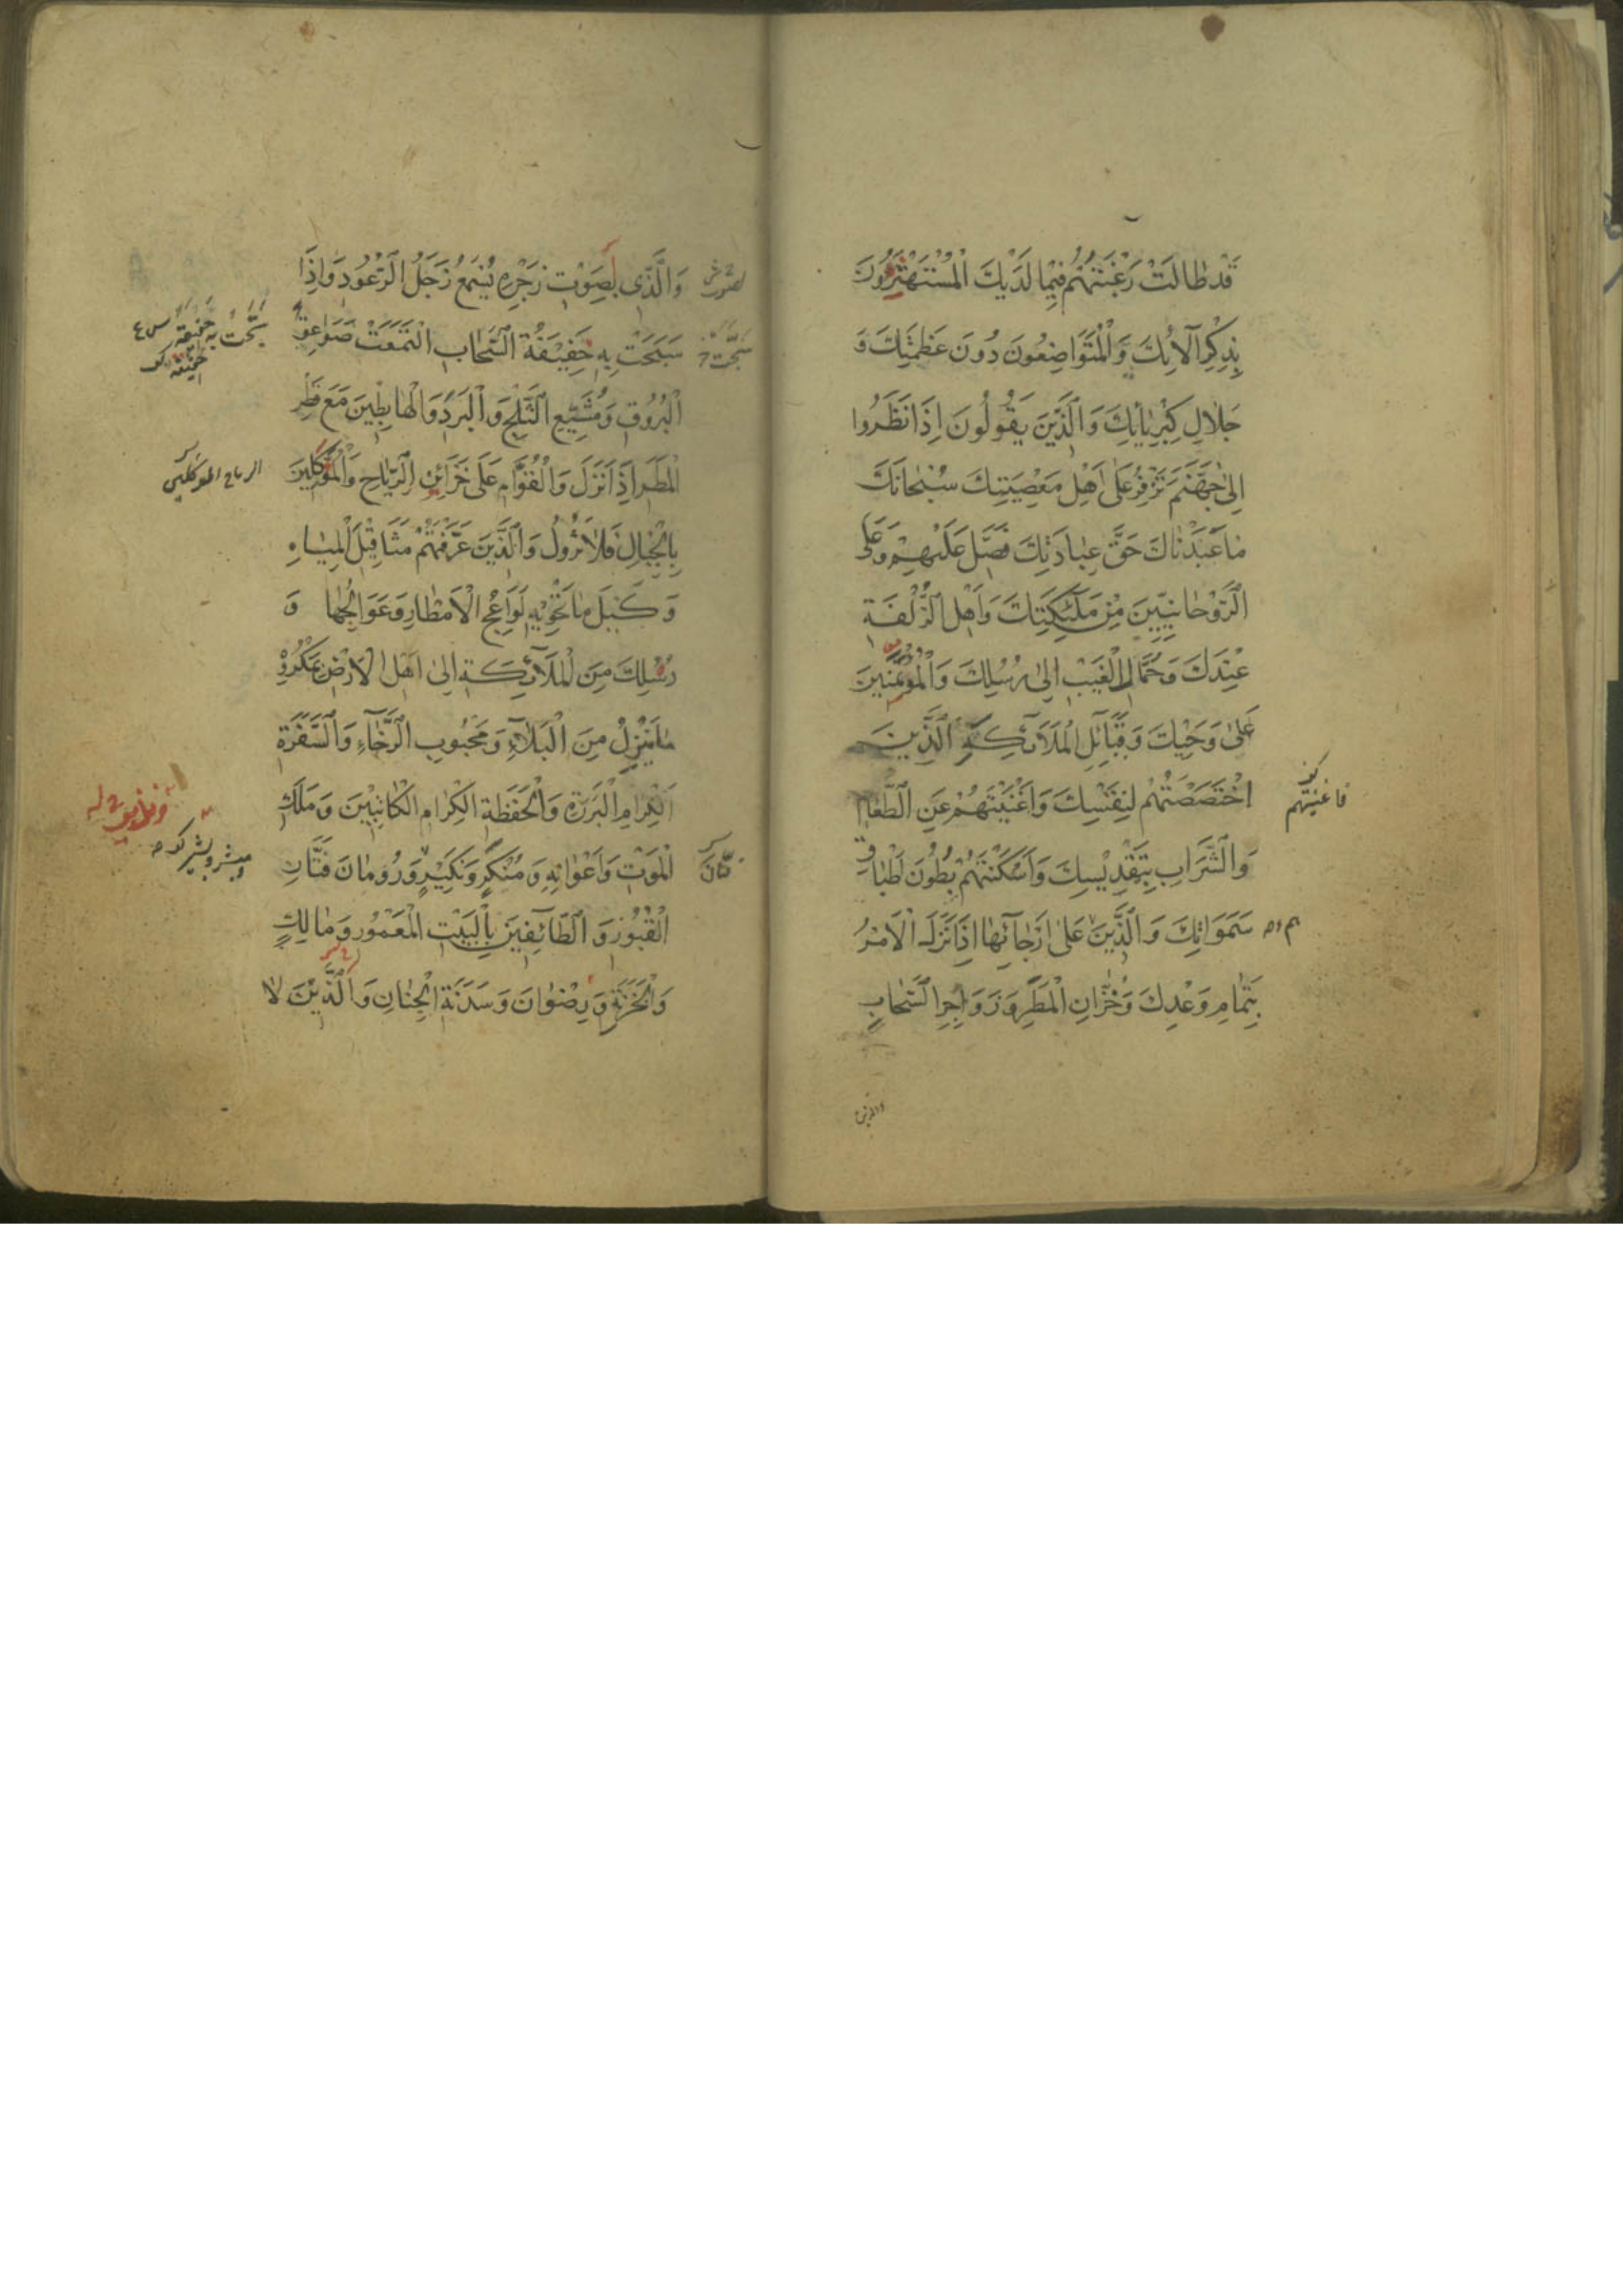 قَدْ طَالَتْ رَغْبَتُهُمْ فِيمَا لَدَيْكَ الْمُسْتَهْتَرُونَ
بِذِكْرِ آلَائِكَ وَالْمُتَوَاضِعُونَ دُونَ عَظَمَتِكَ وَ
جَلَالِ كِبْرِيَائِكَ وَالَّذِينَ يَقُولُونَ إِذَا نَظَرُوا
إِلَى جَهَنَّمَ تَزْفِرُ عَلَى أَهْلِ مَعْصِيَتِكَ سُبْحَانَكَ
مَا عَبَدْنَاكَ حَقَّ عِبَادَتِكَ فَصَلِّ عَلَيْهِمْ وَعَلَى
الرَّوْحَانِيِّينَ مِنْ مَلَائِكَتِكَ وَأَهْلِ الزُّلْفَةِ
عِنْدَكَ وَحُمَّالِ الْغَيْبِ إِلَى رُسُلِكَ وَالْمُؤْتَمَنِينَ
عَلَى وَحْيِكَ وَقَبَائِلِ الْمَلَائِكَةِ الَّذِينَ
اخْتَصَصْتَهُمْ لِنَفْسِكَ وَأَغْنَيْتَهُمْ عَنِ الطَّعَامِ
فاغنيتهم
وَالشَّرَابِ بِتَقْدِيسِكَ وَأَسْكَنْتَهُمْ بُطُونَ أَطْبَاقِ
سَمَوَاتِكَ وَالَّذِينَ عَلَى أَرْجَائِهَا إِذَا نَزَلَ الْأَمْرُ
بِتَمَامِ وَعْدِكَ وَخُزَّانِ الْمَطَرِ وَزَوَاجِرِ السَّحَابِ
والذي
وَالَّذِي بِصَوْتِ زَجْرِهِ يُسْمَعُ زَجَلُ الرُّعُودِ وَإِذَا
سَبَحَتْ بِهِ حَفِيفَةُ السَّحَابِ الْتَمَعَتْ صَوَاعِقُ
الْبُرُوقِ وَمُشَيِّعِي الثَّلْجِ وَالْبَرَدِ وَالْهَابِطِينَ مَعَ قَطْرِ
الْمَطَرِ إِذَا نَزَلَ وَالْقُوَّامِ عَلَى خَزَائِنِ الرِّيَاحِ وَالْمُوَكَّلِينَ
الرياح الموكلين
بِالْجِبَالِ فَلَا تَزُولُ وَالَّذِينَ عَرَّفْتَهُمْ مَثَاقِيلَ الْمِيَاهِ
وَكَيْلَ مَا تَحْوِيهِ لَوَاعِجُ الْأَمْطَارِ وَعَوَالِجُهَا وَ
رُسُلِكَ مِنَ الْمَلَائِكَةِ إِلَى أَهْلِ الْأَرْضِ بِمَكْرُوهِ
مَا يَنْزِلُ مِنَ الْبَلَاءِ وَمَحْبُوبِ الرَّخَاءِ وَالسَّفَرَةِ
الْكِرَامِ الْبَرَرَةِ وَالْحَفَظَةِ الْكِرَامِ الْكَاتِبِينَ وَمَلَكِ
الْمَوْتِ وَأَعْوَانِهِ وَمُنْكَرٍ وَنَكِيرٍ وَرُومَانَ فَتَّانِ
الْقُبُورِ وَالطَّائِفِينَ بِالْبَيْتِ الْمَعْمُورِ وَمَالِكٍ
وَالْخَزَنَةِ وَرِضْوَانَ وَسَدَنَةِ الْجِنَانِ وَالَّذِينَ لَا